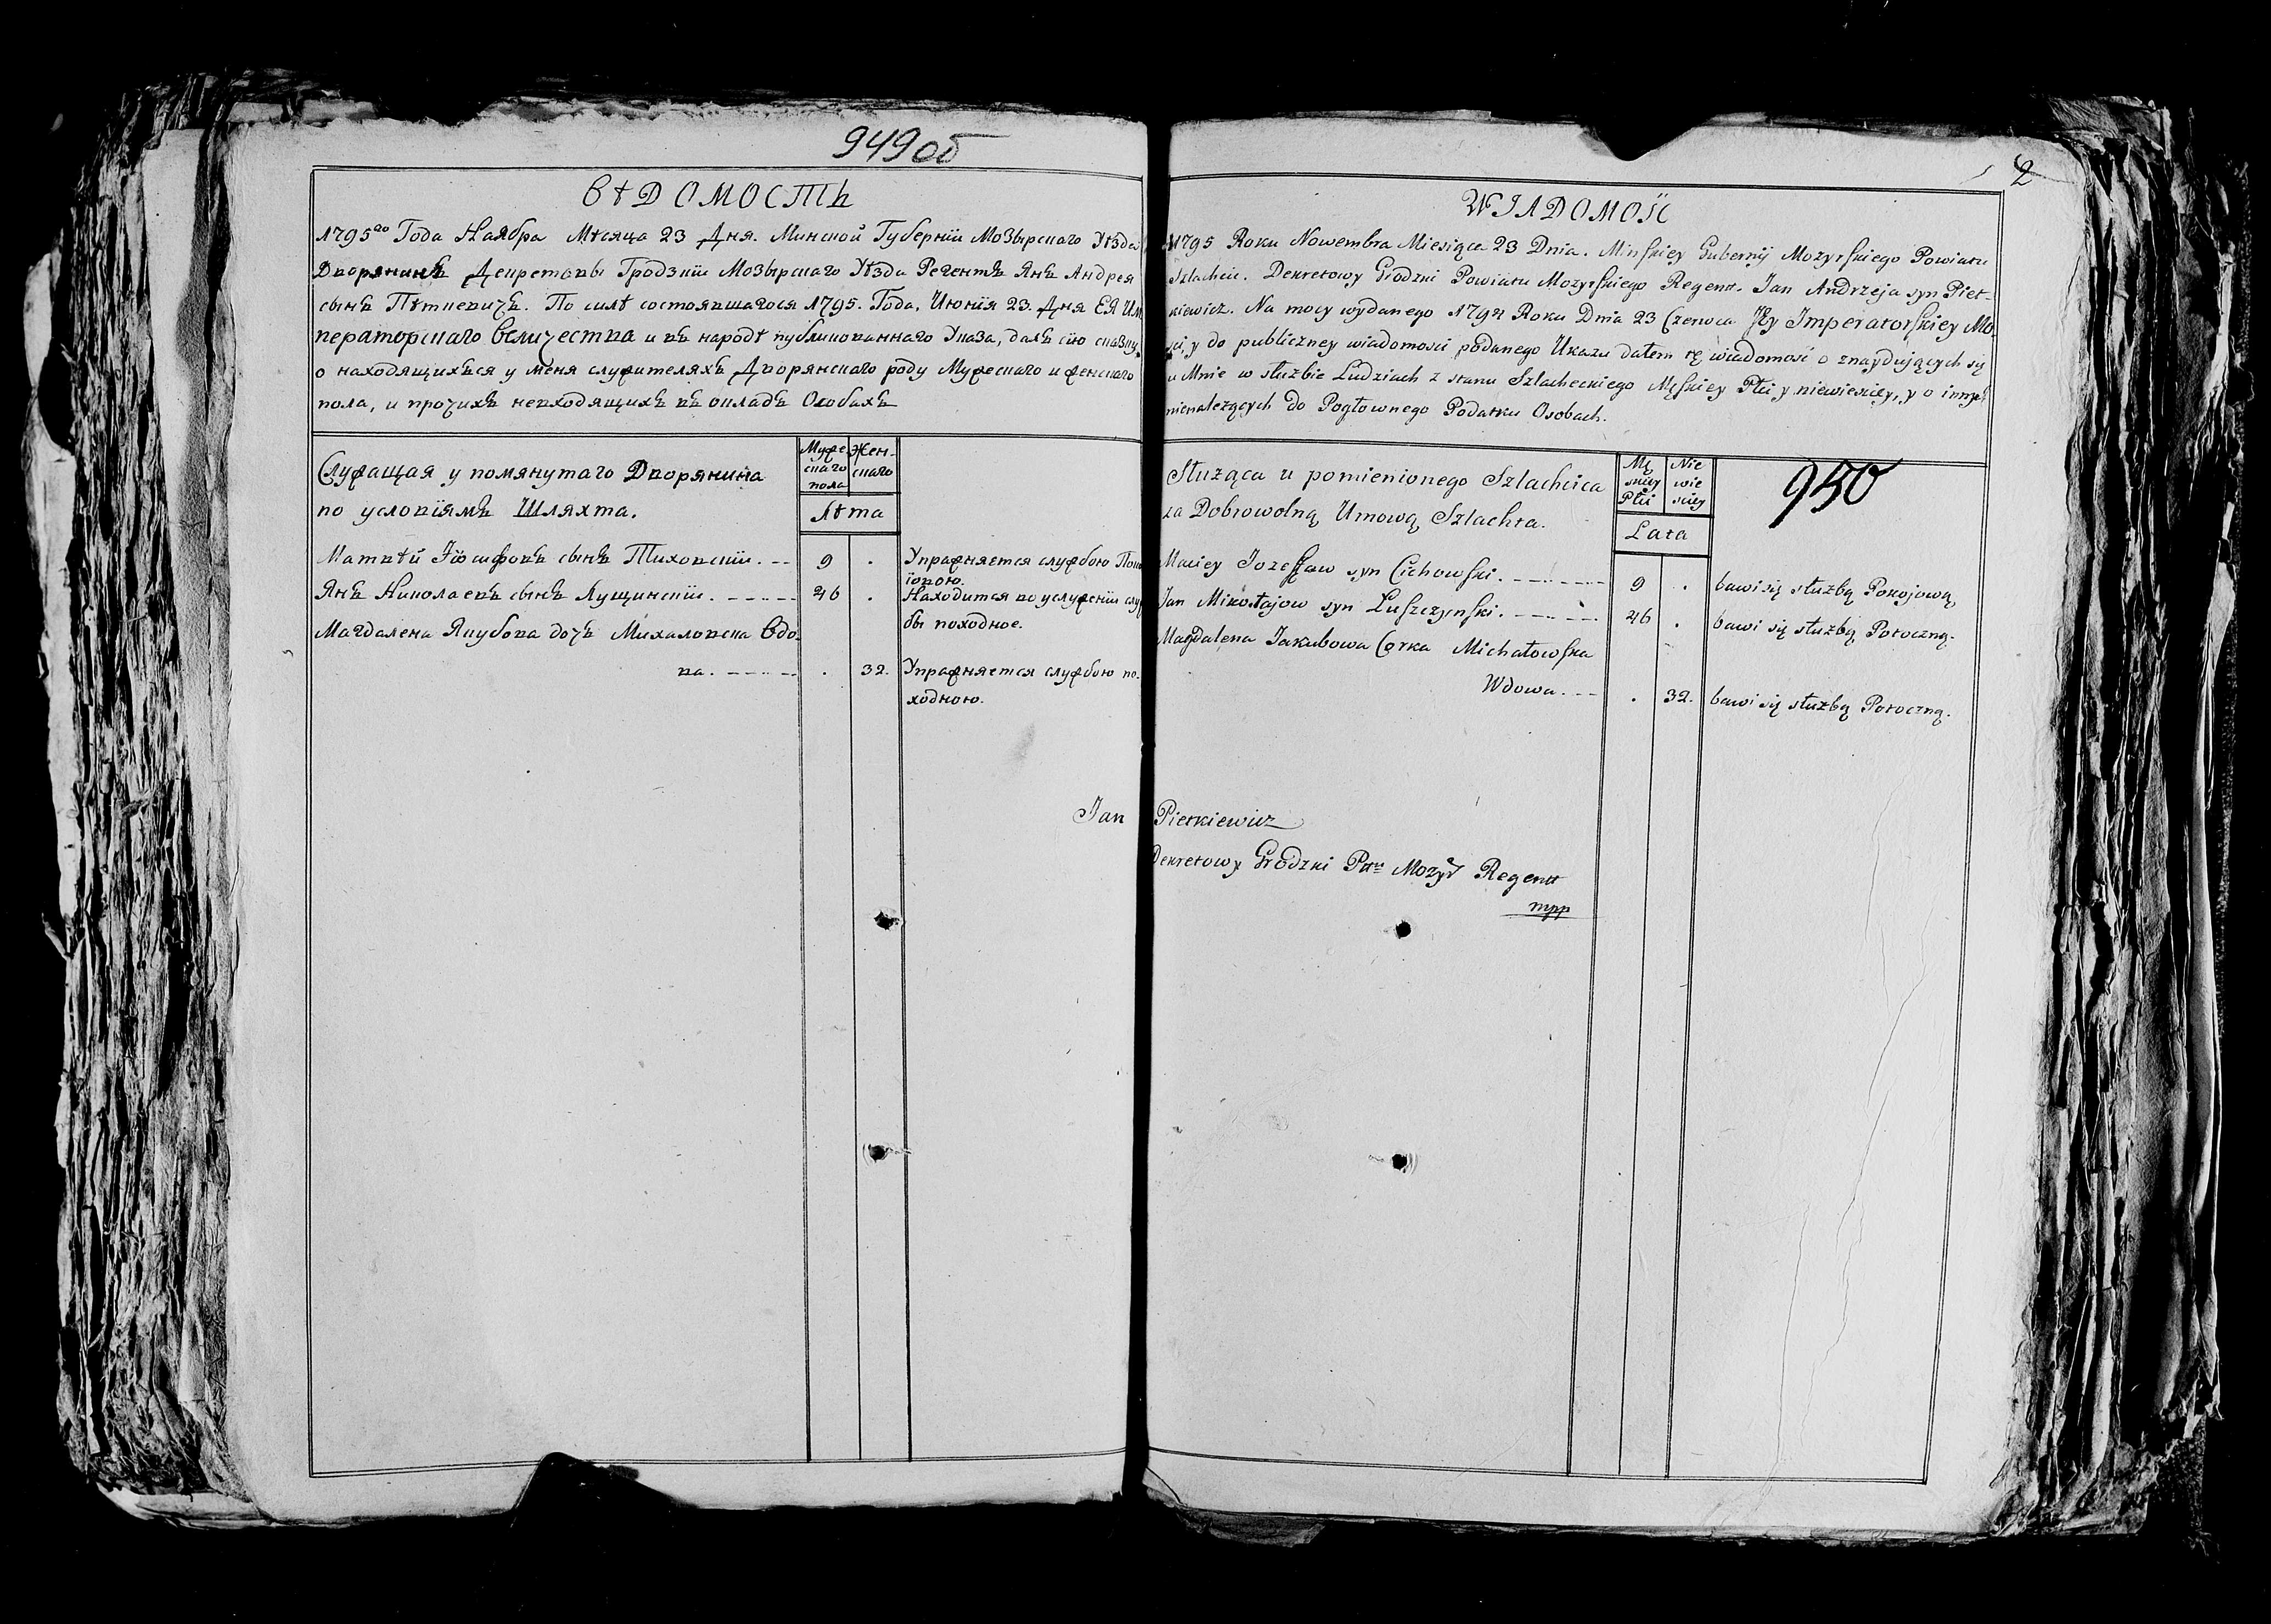 949 об
ВѢДОМОСТЬ
1795го Года Наября Мѣсяца 23 Дня. Минской Губернїи Мозырскаго Уѣзда
Дворянинъ Декретовы Гродзкїи Мозырскаго Уѣзда Регентъ Янъ Андрея
сынъ Пѣткевичъ. По силѣ состоявшагося 1795. Года, Июнїя 23. Дня ЕЯ ИМ
ператорскаго величества и въ народѣ публикованнаго Указа, далъ сїю сказку
о находящихъся у меня служителяхъ Дворянскаго роду Мужескаго и женского
пола, и прочихъ невходящихъ въ окладъ Особахъ
Служащая у помянутаго Дворянина
по условїямъ Шляхта.
Муже
скаго
пола
Жен-
скаго
Лѣта
Матвѣй Їосифовъ сынъ Тиховскїи. 9 . Упражняется службою Поко
їовою.
Янъ Николаевъ сынъ Лущинскїи. 46 . Находится во услуженїи слу
бы походное.
Магдалена Якубова дочъ Михаловска Вдо
ва. . 32. Упражняется службою по-
ходною.
2
WIADOMOŚĆ
1795 Roku Nowembra Miesiąca 23 Dnia. Minskiey Gubernij Mozyrskiego Powiatu
Szlachcic. Dekretowy Grodzki Powiatu Mozyrskiego Regent. Jan Andrzeja syn Piet-
kiewicz. Na mocy wydanego 1794 Roku Dnia 23 Czerwca Jey Imperatorskiey Mo
ści, y do publiczney wiadomości podanego Ukazu dałem tę wiadomość o znayduiących się
u Mnie w służbie Ludziach z stanu Szlacheckiego Męskiey Płci, y niewieściey, y o innych
nienależących do Pogłownego Podatku Osobach.
Służąca u pomienionego Szlachcica
za Dobrowolną Umową Szlachta.
Mę
skiey
Płci
Nie
wie
sciey
Lata
950
Maciey Jozefaw syn Cichowski. 9 . bawi się służbą Pokojową
Jan Mikołajow syn Luszczynski. 46 . bawi się służbą Potoczną.
Magdalena Jakubowa Corka Michałowska
Wdowa. . 32. bawi się służbą Potoczną.
Jan Pietkiewicz
Dekretowy Grodzki Pttu Mozyr Regent
mpp